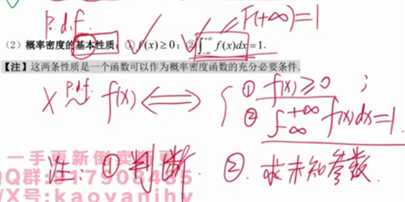 P.d.f
F(+∞)=1
(2) 概率密度的基本性质：① f(x) ≥ 0；② ∫_{-∞}^{+∞} f(x)dx = 1.
【注】这两条性质是一个函数可以作为概率密度函数的充分必要条件.
X ~ p.d.f. f(x) ⟺ { ① f(x) ≥ 0 ;
② ∫_{-∞}^{+∞} f(x)dx = 1.
注：① 判断. ② 求未知参数.
一手更新
QQ群:
VX号:kaoyanjihy